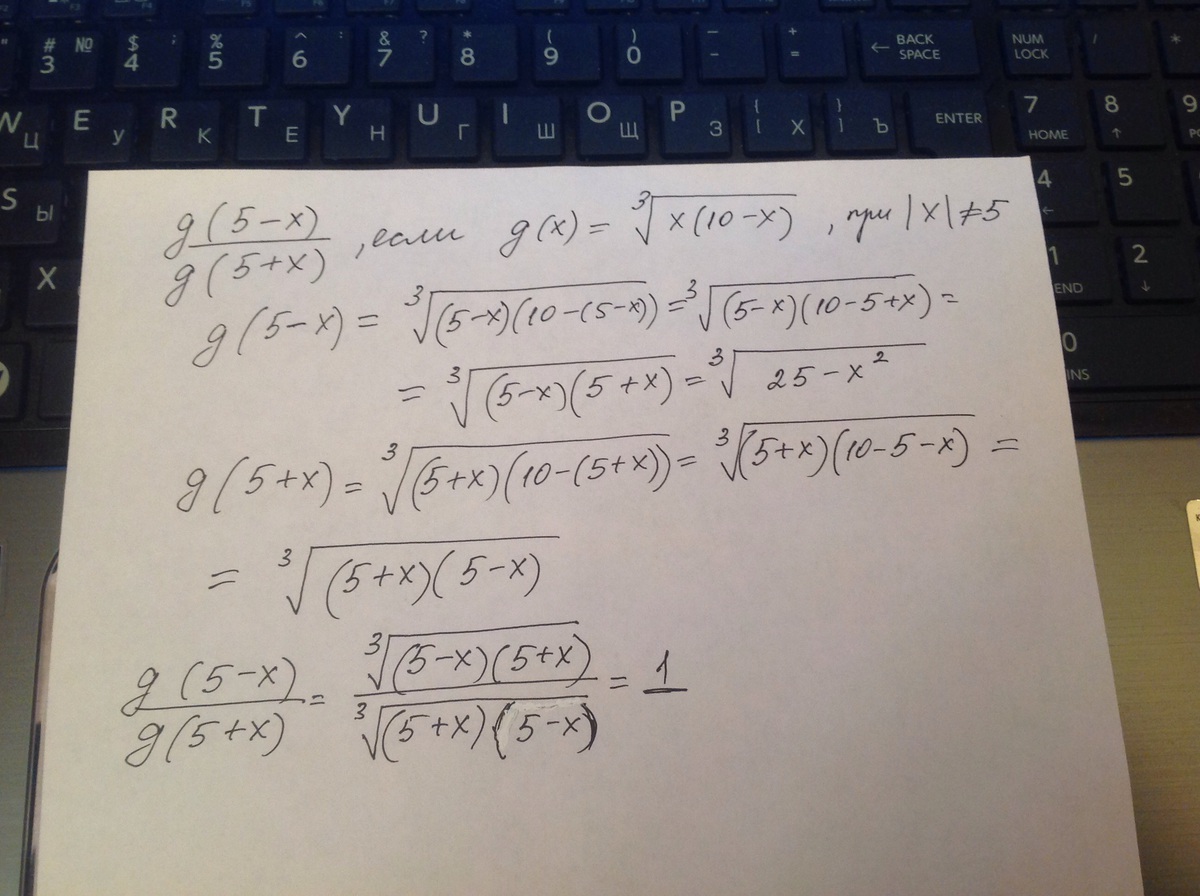 # 3 №
$ 4 ;
% 5
^ 6 :
& 7 ?
* 8
( 9
) 0
_ -
+ =
← BACK SPACE
NUM LOCK
/
*
W Ц
E У
R К
T Е
Y Н
U Г
I Ш
O Щ
P З
{ [ Х
} ] Ъ
ENTER
7 HOME
8 ↑
9
S Ы
4 ←
5
X
1 END
2 ↓
0 INS
g(5-x)/g(5+x), если g(x) = ∛(x(10-x)), при |x|≠5
g(5-x) = ∛((5-x)(10-(5-x))) = ∛((5-x)(10-5+x)) =
= ∛((5-x)(5+x)) = ∛(25-x²)
g(5+x) = ∛((5+x)(10-(5+x))) = ∛((5+x)(10-5-x)) =
= ∛((5+x)(5-x))
g(5-x)/g(5+x) = ∛((5-x)(5+x))/∛((5+x)(5-x)) = 1